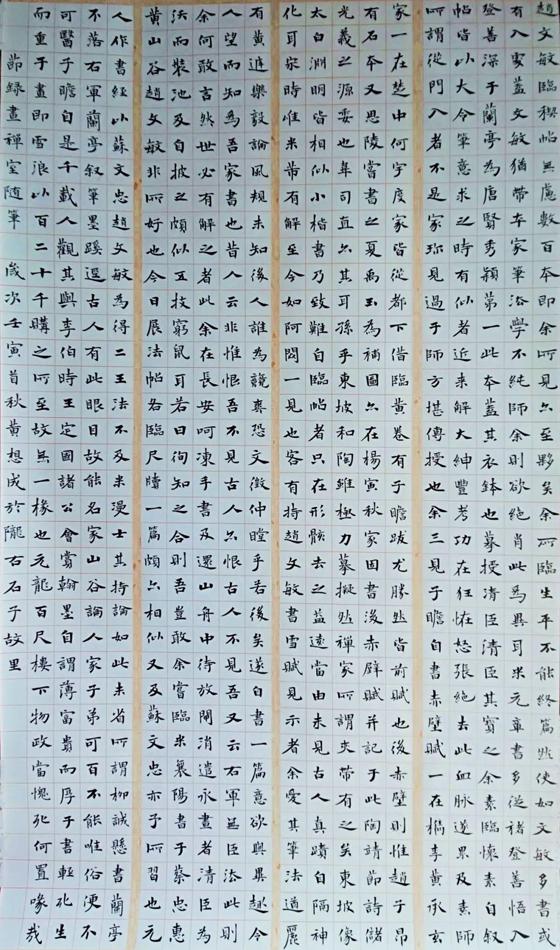 趙文敏臨禊帖無慮數百本即余所見亦至夥矣余所臨生平不能終篇然使如文敏多書或
有入處蓋文敏猶帶本家筆法學不純師余則欲絕肖此為異耳米元章書多從褚登善悟入
登善深于蘭亭為唐賢秀穎第一此本蓋其衣鉢也摹授清臣清臣其寶之余素臨懷素自叙
帖皆以大令筆意求之時有似者近來解大紳豐考功在狂怒張絕去此血脈遂累及素師
所謂從門入者不是家珍見過于師方堪傳授也余三見子瞻自書赤壁賦一在樵李黃承玄
家一在楚中何宇度家皆從都下借臨黃卷有子瞻跋尤勝然皆前賦也後赤壁則惟趙子昂
有石本又思陵當書之夏禹玉為補圖亦在楊寅秋家因書後赤壁賦并記于此陶靖節詩儲
光羲之源委也韋司直亦其耳孫乎東坡和陶雖極力摹擬然禪家所謂夾帶有之矣東坡像
太白淵明皆相似小楷書乃致難自臨帖者只在形骸去之益遠當由未見古人真蹟自隔神
化耳宋時惟米芾有解至今如阿閦一見也客有持趙文敏書雪賦見示者余愛其筆法遒麗
有黃庭樂毅論風規未知後人誰為競賽恐文徵仲瞠乎若後矣遂自書一篇意欲與異趣今
人望而知為吾家書也昔人云非惟恨吾不見古人亦恨古人不見吾又云右軍無臣法此則
余何敢言然世必有解之者此余在長安日呵凍手書及還山舟中待放閘消遣永晝者清臣惠為
法而裝池及自披之頗似五技窮鼠耳若曰徇知之合則吾豈敢余嘗臨米襄陽書于蔡忠惠
黃山谷趙文敏非所好也今日展法帖各臨尺牘一篇頗亦相似又及蘇文忠亦予所習也元
人作書經以蘇文忠趙文敏為得二王法不及米漫士其持論如此未省所謂柳誠懸書蘭亭
不落右軍蘭亭叙筆墨蹊逕古人有此眼目故能名家山谷論人家子弟可百不能唯俗便不
可醫于子瞻自是千載人觀其與李伯時王定國諸公會賞翰墨自謂薄富貴而厚于書輕死生
而重于畫即雪浪以百二十千購之所至故無一椽也元龍百尺樓下物政當愧死何置喙哉
節録畫禪室随筆 歲次壬寅首秋黃想成於隴右石子故里